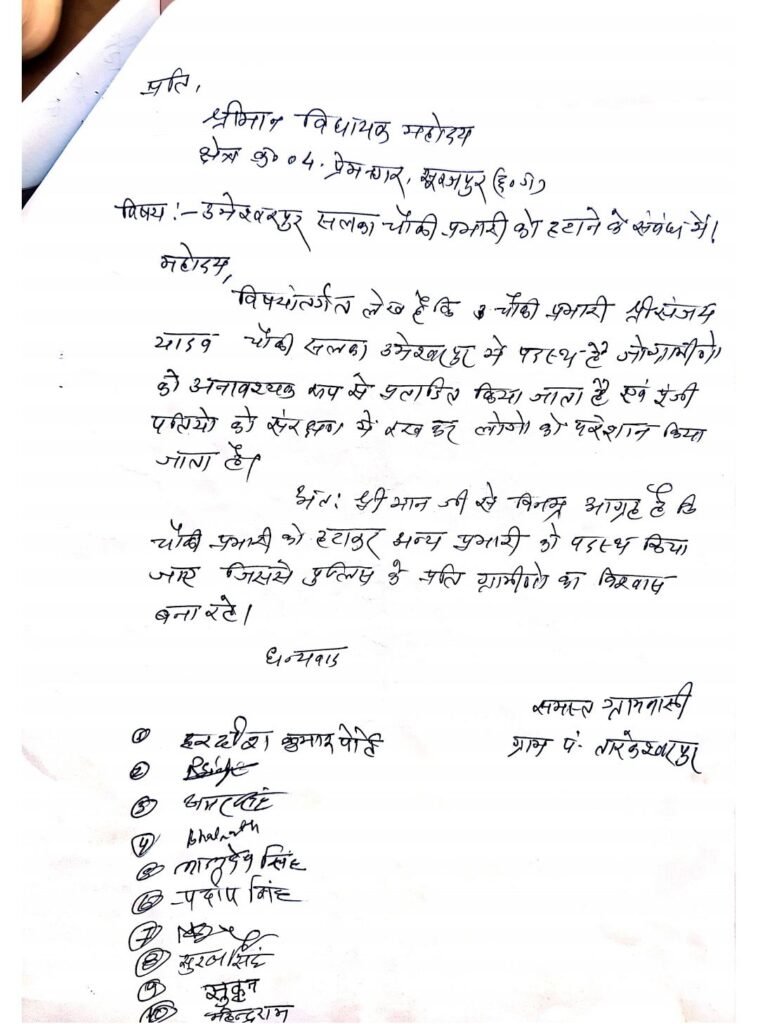 प्रति,
श्रीमान विधायक महोदय
क्षेत्र क्र० 04. प्रेमनगर, सूरजपुर (छ०ग०)
विषय :- उमेश्वरपुर सलका चौकी प्रभारी को हटाने के संबंध में।
महोदय,
विषयांतर्गत लेख है कि चौकी प्रभारी श्री संजय
यादव चौकी सलका उमेश्वरपुर में पदस्थ है जो ग्रामीणो
को अनावश्यक रूप से प्रताडित किया जाता है एवं पूंजी
पतियो को संरक्षण में रख कर लोगो को परेशान किया
जाता है।
अतः श्रीमान जी से विनम्र आग्रह है कि
चौकी प्रभारी को हटाकर अन्य प्रभारी को पदस्थ किया
जाए जिससे पुलिस के प्रति ग्रामीणो का विश्वास
बना रहे।
धन्यवाद
समस्त ग्रामवासी
ग्राम पं. तारकेश्वरपुर
① कुमार पोर्ते
②
③
④
⑤ सिंह
⑥ प्रदीप सिंह
⑦
⑧ सुरज सिंह
⑨
⑩ महेन्द्रराम